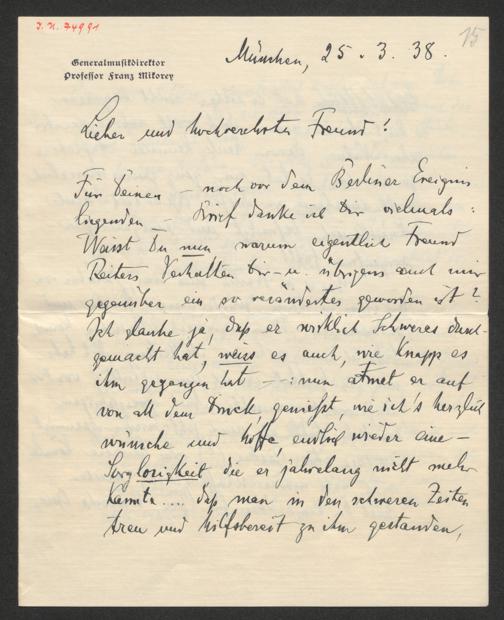 J. N. 74991
15
Generalmusikdirektor
Professor Franz Mikorey
München, 25. 3. 38.
Lieber und hochverehrter Freund!
Für Deinen – noch vor dem Berliner Ereignis
liegenden – Brief danke ich Dir vielmals:
Weisst Du nun warum eigentlich Freund
Reiters Verhalten Dir – u. übrigens auch mir
gegenüber ein so verändertes geworden ist?
Ich glaube ja, daß er wirklich Schweres durch-
gemacht hat, weiss es auch, wie knapp es
ihm gegangen hat –: nun atmet er auf
von all dem Druck geniesst, wie ich's herzlich
wünsche und hoffe, endlich wieder eine –
Sorglosigkeit die er jahrelang nicht mehr
kannte.... daß man in den schweren Zeiten
treu und hilfsbereit zu ihm gestanden,